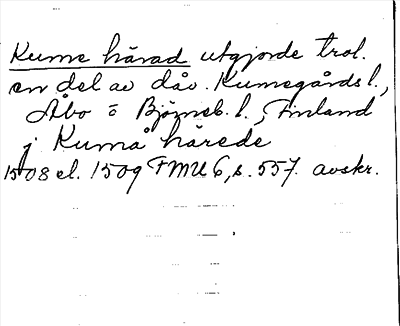 Kumo härad utgjorde trol.
en del av dåv. Kumogårds l.,
Åbo o Björneb. l., Finland
j Kumå härede
1508 el. 1509 FMU 6, s. 557. avskr.